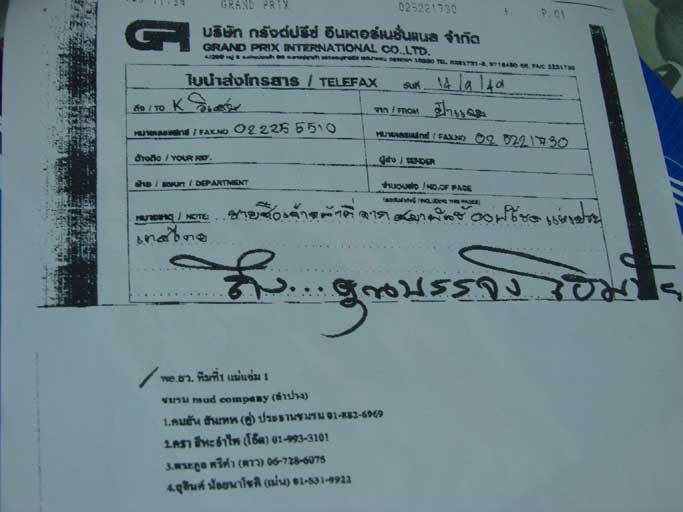 11:34 GRAND PRIX 025221730 P.01
GPI
บริษัท กรังด์ปรีซ์ อินเตอร์เนชั่นแนล จำกัด
GRAND PRIX INTERNATIONAL CO.,LTD.
ใบนำส่งโทรสาร / TELEFAX วันที่
ส่ง / TO K วิเศษ จาก / FROM
หมายเลขแฟกซ์ / FAX.NO 022255510 หมายเลขแฟกซ์ / FAX.NO 02 5221730
อ้างถึง / YOUR REF. ผู้ส่ง / SENDER
ฝ่าย / แผนก / DEPARTMENT จำนวนแผ่น / NO.OF PAGE
(INCLUDING THIS PAGES)
หมายเหตุ / NOTE: รายชื่อเจ้าหน้าที่จากสมาพันธ์ออฟโรดแห่งประ
เทศไทย
ถึง... คุณบรรจง
พอ.สว. ทีมที่1 แม่แจ่ม 1
ชมรม mud company (ลำปาง)
1.คมสัน สันเทพ (คู่) ประธานชมรม 01-882-6969
2.ครา (โอ๊ต) 01-993-3101
3.ตระกูล ศรีคำ (ดาว) 06-728-6075
4.สุรินต์ น้อยนาโชติ (เม่น) 01-531-9922